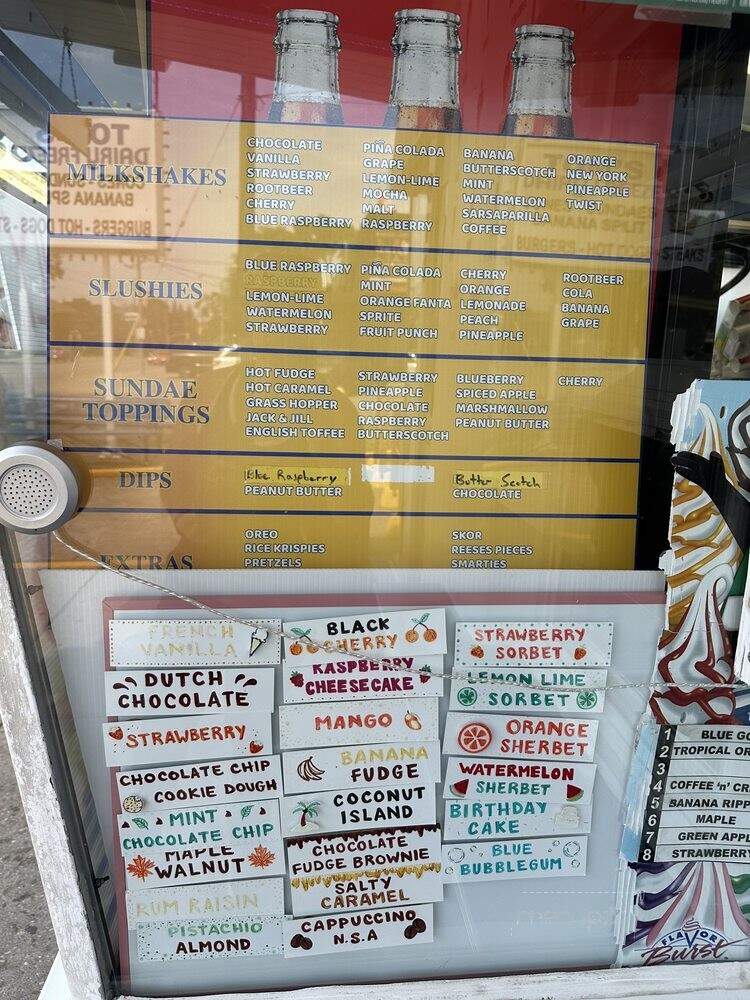 MILKSHAKES
CHOCOLATE
VANILLA
STRAWBERRY
ROOTBEER
CHERRY
BLUE RASPBERRY
PIÑA COLADA
GRAPE
LEMON-LIME
MOCHA
MALT
RASPBERRY
BANANA
BUTTERSCOTCH
MINT
WATERMELON
SARSAPARILLA
COFFEE
ORANGE
NEW YORK
PINEAPPLE
TWIST
SLUSHIES
BLUE RASPBERRY
RASPBERRY
LEMON-LIME
WATERMELON
STRAWBERRY
PIÑA COLADA
MINT
ORANGE FANTA
SPRITE
FRUIT PUNCH
CHERRY
ORANGE
LEMONADE
PEACH
PINEAPPLE
ROOTBEER
COLA
BANANA
GRAPE
SUNDAE
TOPPINGS
HOT FUDGE
HOT CARAMEL
GRASS HOPPER
JACK & JILL
ENGLISH TOFFEE
STRAWBERRY
PINEAPPLE
CHOCOLATE
RASPBERRY
BUTTERSCOTCH
BLUEBERRY
SPICED APPLE
MARSHMALLOW
PEANUT BUTTER
CHERRY
DIPS
Blue Raspberry
PEANUT BUTTER
Butter Scotch
CHOCOLATE
EXTRAS
OREO
RICE KRISPIES
PRETZELS
SKOR
REESES PIECES
SMARTIES
FRENCH
VANILLA
DUTCH
CHOCOLATE
STRAWBERRY
CHOCOLATE CHIP
COOKIE DOUGH
MINT
CHOCOLATE CHIP
MAPLE
WALNUT
RUM RAISIN
PISTACHIO
ALMOND
BLACK
CHERRY
RASPBERRY
CHEESECAKE
MANGO
BANANA
FUDGE
COCONUT
ISLAND
CHOCOLATE
FUDGE BROWNIE
SALTY
CARAMEL
CAPPUCCINO
N.S.A
STRAWBERRY
SORBET
LEMON LIME
SORBET
ORANGE
SHERBET
WATERMELON
SHERBET
BIRTHDAY
CAKE
BLUE
BUBBLEGUM
1 BLUE GO
2 TROPICAL OR
3
4 COFFEE 'n' CR
5 BANANA RIPP
6 MAPLE
7 GREEN APPL
8 STRAWBERRY
FLAVOR
Burst